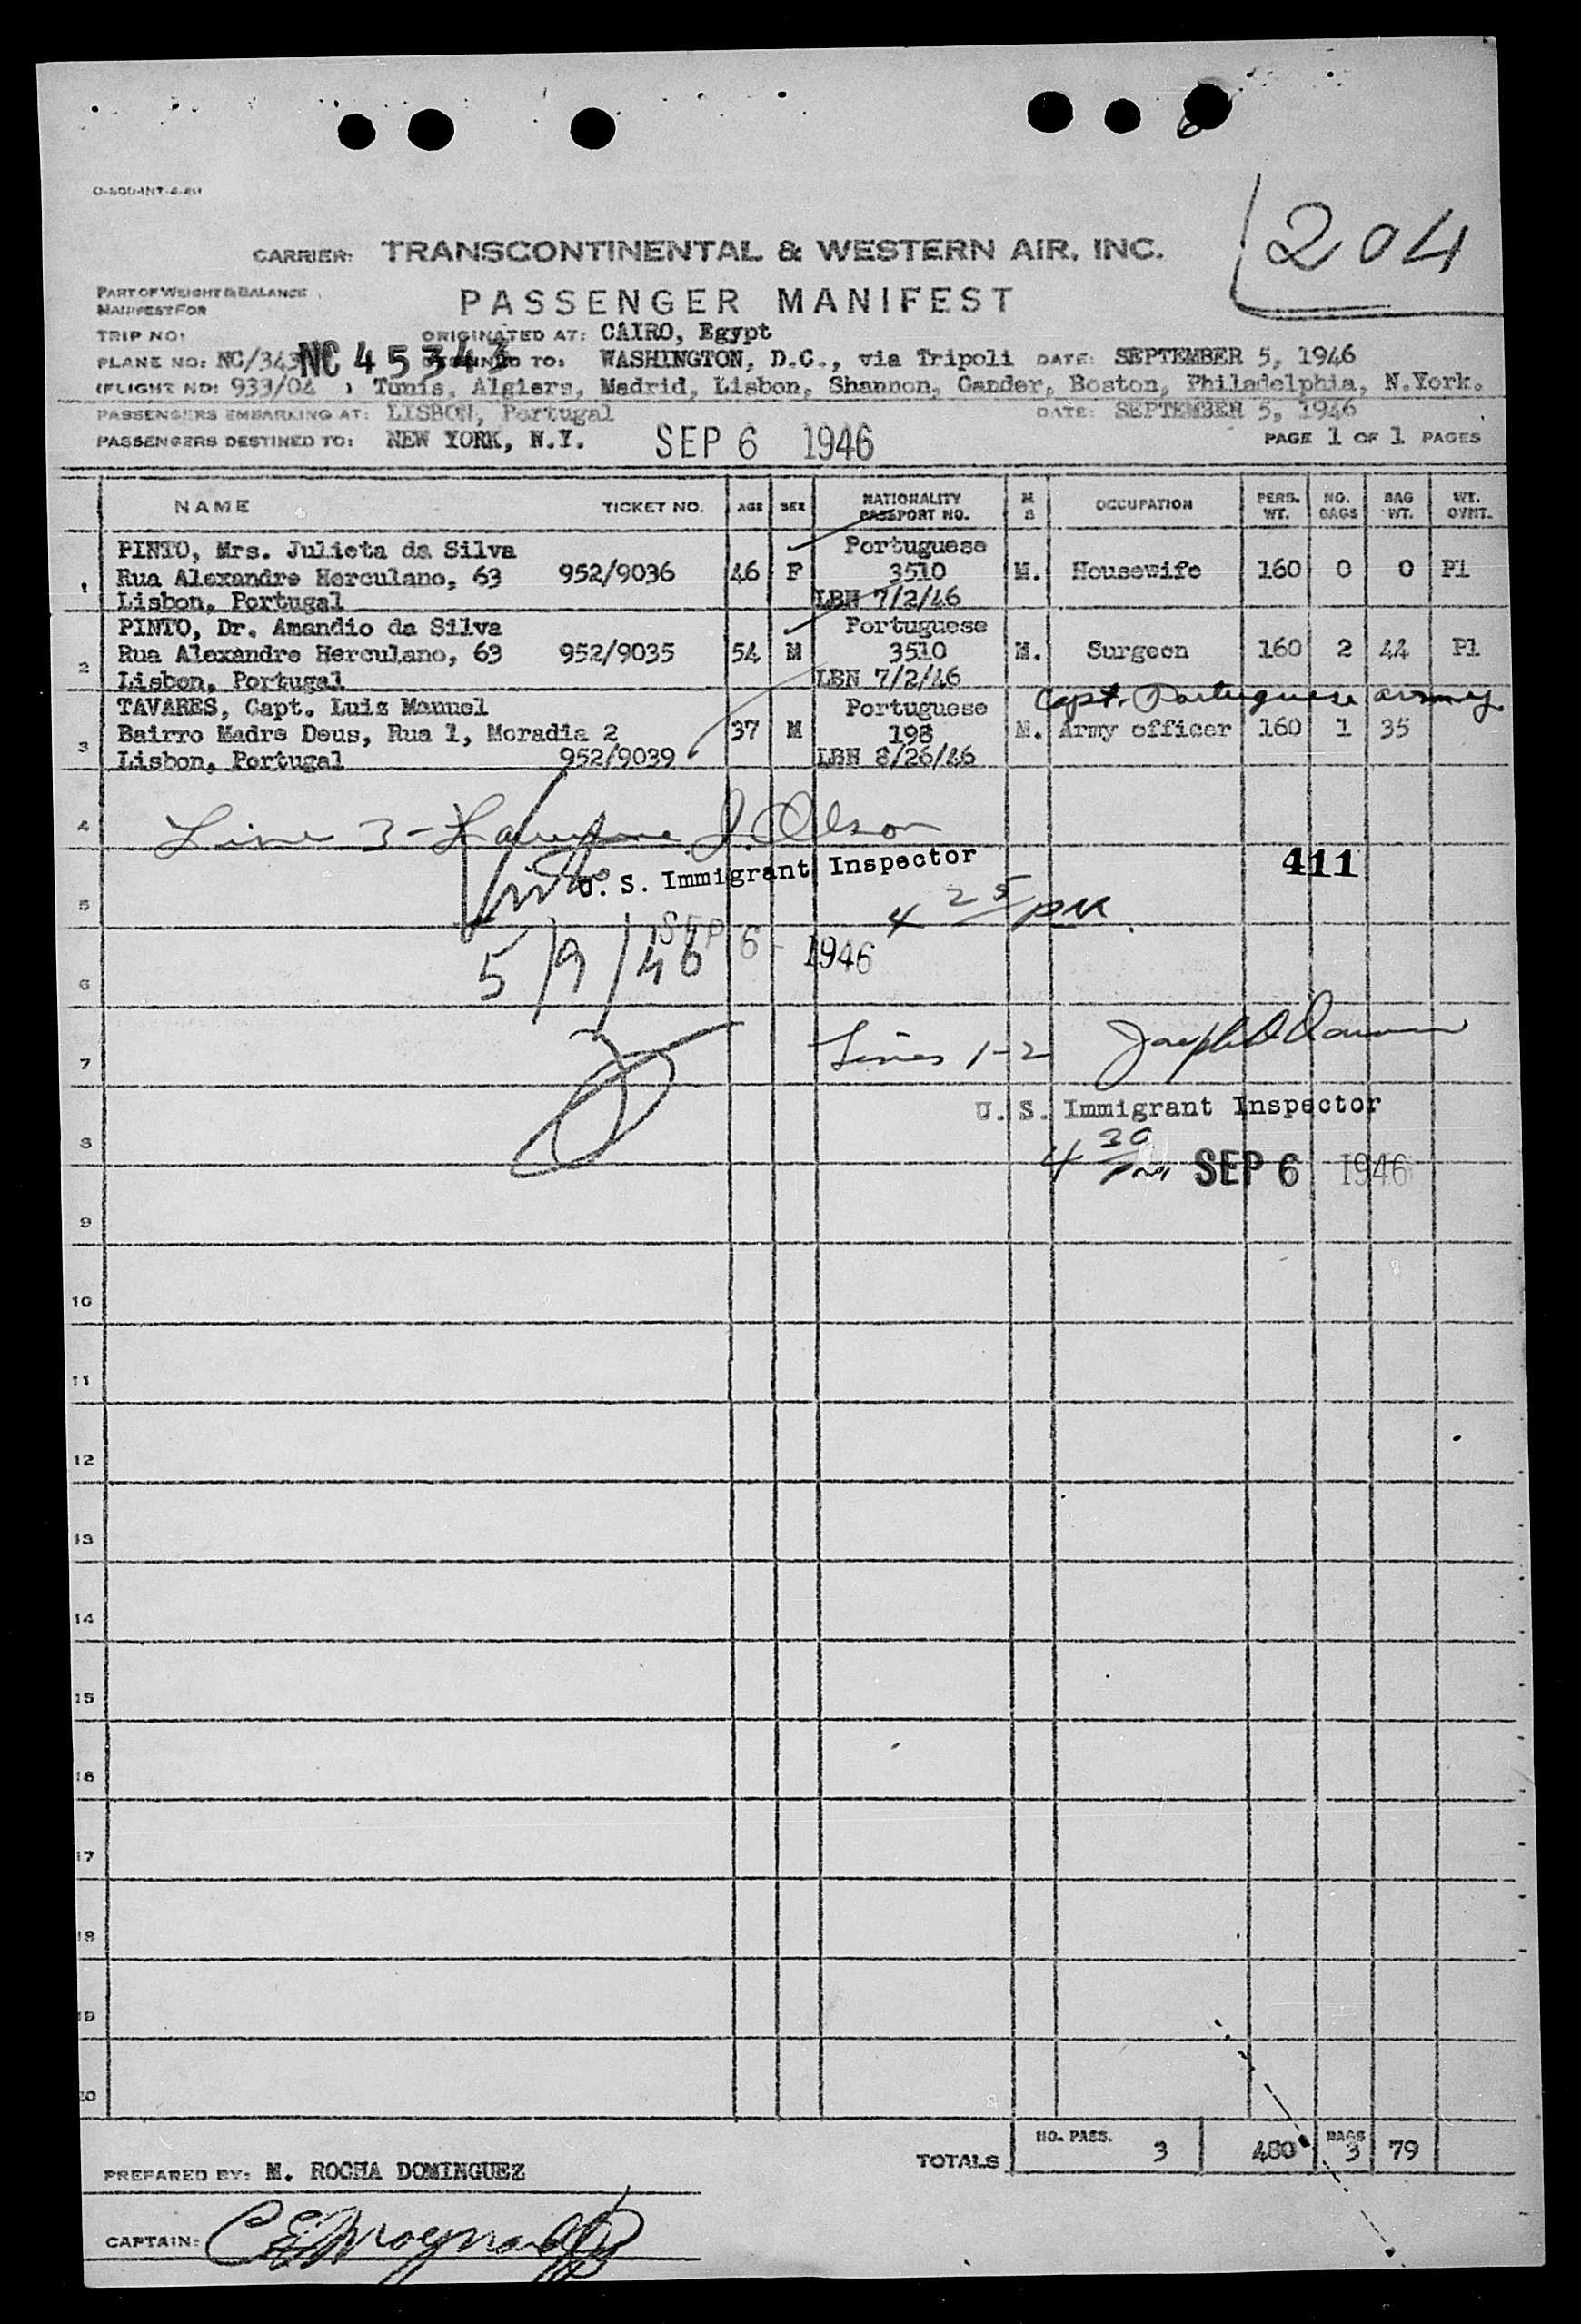 204
CARRIER: TRANSCONTINENTAL & WESTERN AIR, INC.
PART OF WEIGHT & BALANCE
MANIFEST FOR
PASSENGER MANIFEST
TRIP NO: ORIGINATED AT: CAIRO, Egypt
PLANE NO: NC/343 NC 45343 TO: WASHINGTON, D.C., via Tripoli DATE: SEPTEMBER 5, 1946
(FLIGHT NO: 933/04 ) Tunis, Algiers, Madrid, Lisbon, Shannon, Gander, Boston, Philadelphia, N.York.
PASSENGERS EMBARKING AT: LISBON, Portugal DATE: SEPTEMBER 5, 1946
PASSENGERS DESTINED TO: NEW YORK, N.Y. SEP 6 1946 PAGE 1 OF 1 PAGES
NAME TICKET NO. AGE SEX NATIONALITY PASSPORT NO. M S OCCUPATION PERS. WT. NO. BAGS BAG WT. WT. OVNT.
PINTO, Mrs. Julieta da Silva Portuguese
1 Rua Alexandre Herculano, 63 952/9036 46 F 3510 M. Housewife 160 0 0 Pl
Lisbon, Portugal LBN 7/2/46
PINTO, Dr. Amandio da Silva Portuguese
2 Rua Alexandre Herculano, 63 952/9035 54 M 3510 M. Surgeon 160 2 44 Pl
Lisbon, Portugal LBN 7/2/46
Capt. Portuguese army.
TAVARES, Capt. Luiz Manuel Portuguese
3 Bairro Madre Deus, Rua 1, Moradia 2 37 M 198 M. Army officer 160 1 35
Lisbon, Portugal 952/9039 LBN 8/26/46
4 Line 3 - J. Olson
U. S. Immigrant Inspector 411
5 Visto 4 25 PM.
SEP 6 - 1946
6 5/9/46
7 Lines 1-2 Joseph
U. S. Immigrant Inspector
8 4 30 pm SEP 6 1946
9
10
11
12
13
14
15
16
17
18
19
20
TOTALS NO. PASS. 3 480 BAGS 3 79
PREPARED BY: M. ROCHA DOMINGUEZ
CAPTAIN: